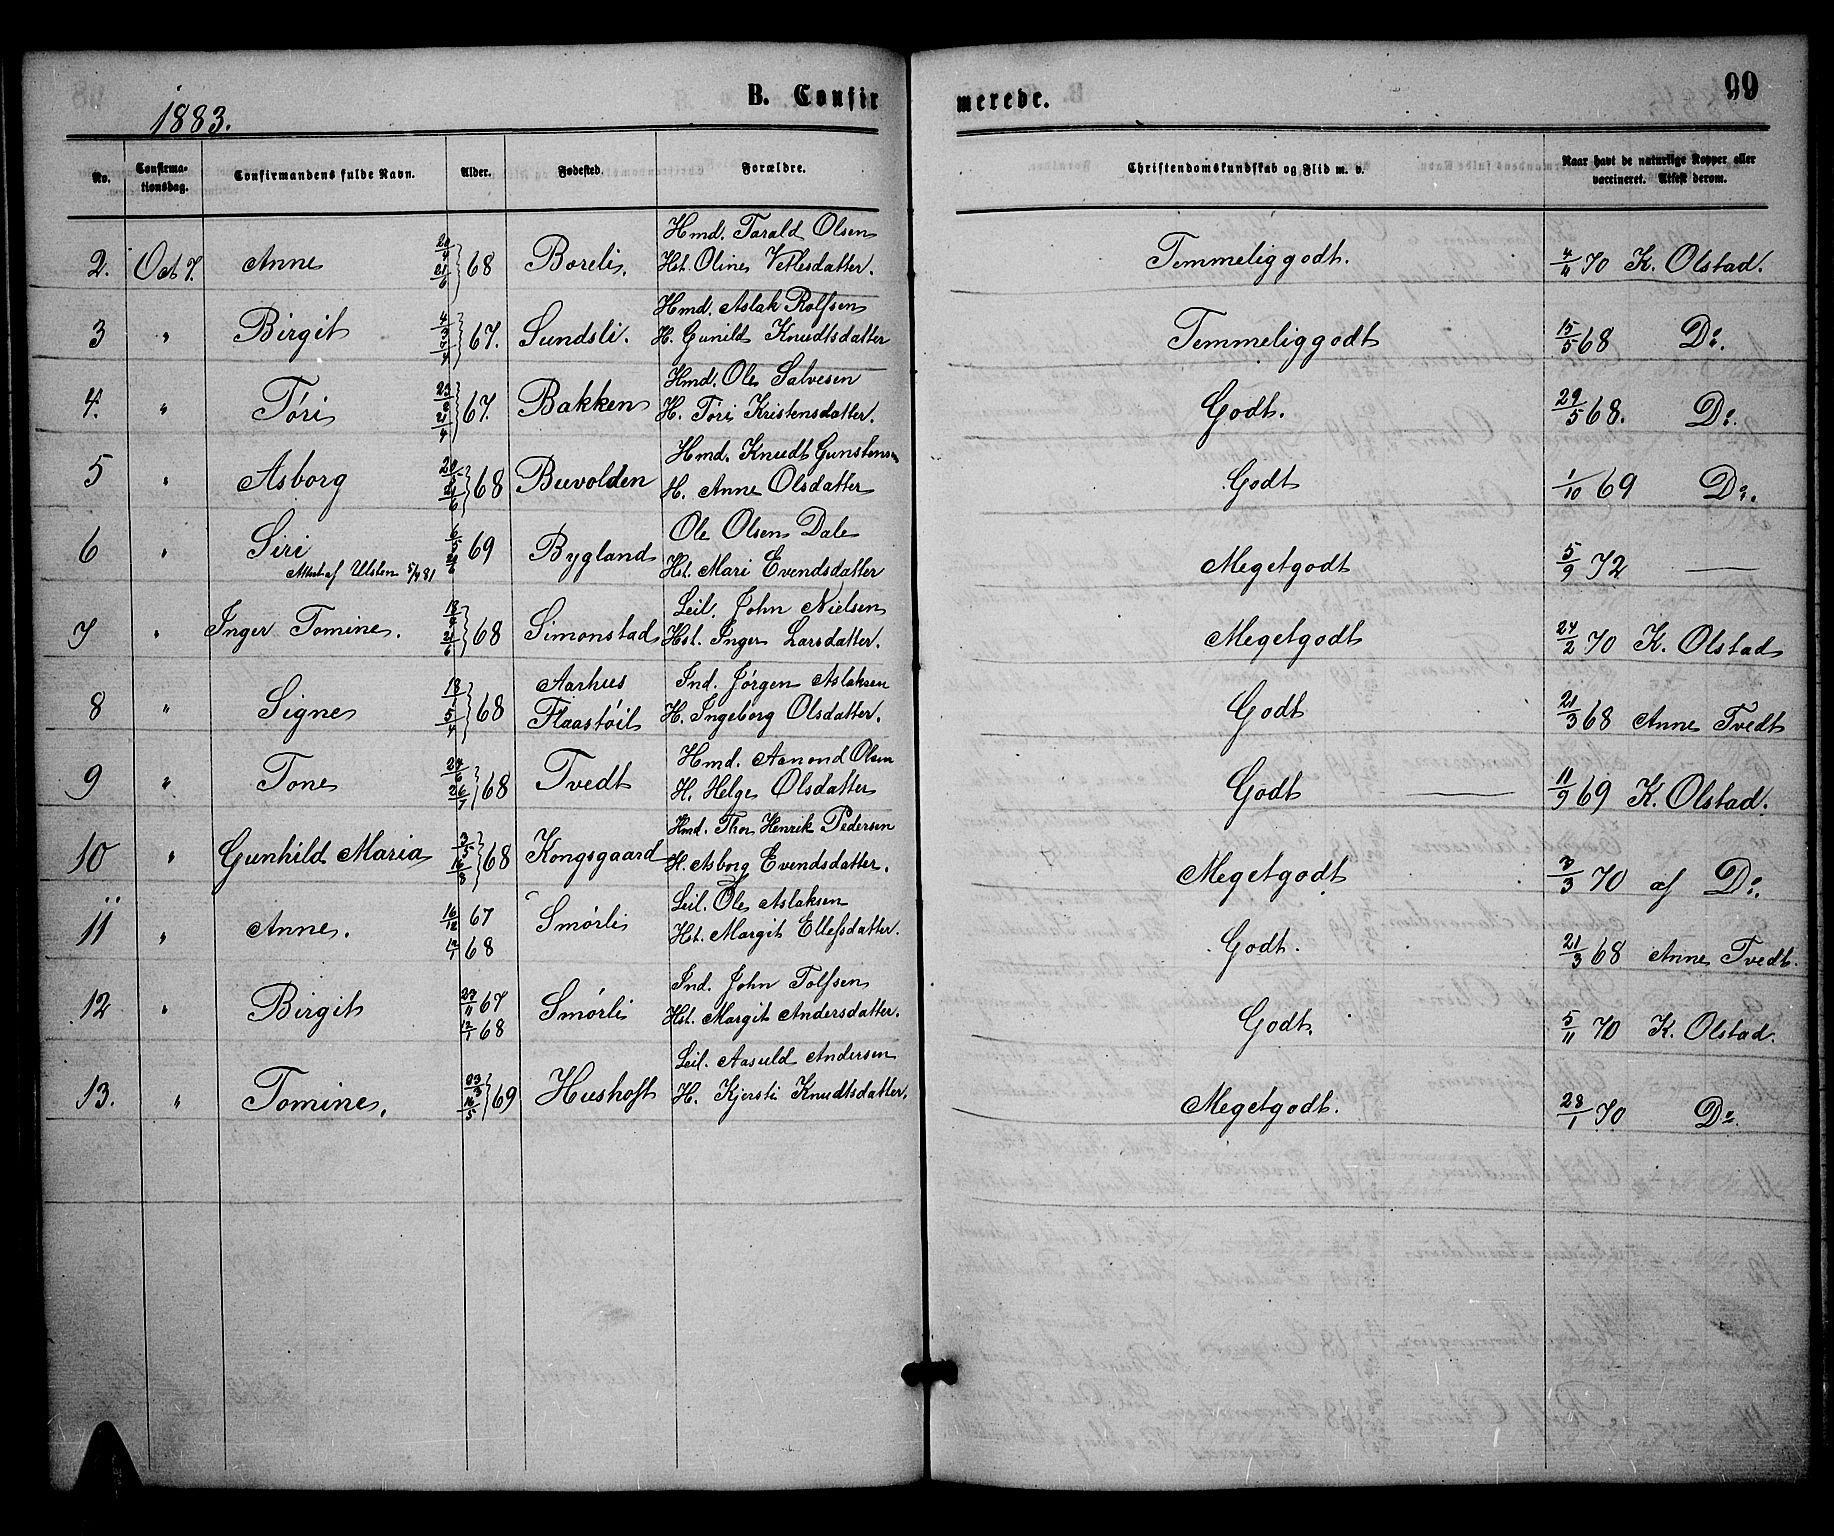 1883.
B. Confirmerede.
99
No.
Confirmationsdag.
Confirmandens fulde Navn.
Alder.
Fødested.
Forældre.
Christendomskundskab og Flid m. v.
Naar havt de naturlige Kopper eller vaccineret. Attest derom.
2. Oct 7. Anne 21/6 68 Boreli. Hmd. Tarald Olsen
Hst. Oline Vetlesdatter. Temmeliggodt. 4/4 70 K. Olstad.
3 " Birgit 67. Sundsli. Hmd. Aslak Rolfsen
H. Gunild Knudtsdatter Temmeliggodt 15/5 68 Do.
4. " Tóri 21/4 67. Bakken Hmd. Ole Salvesen
H. Tóri Kristensdatter. Godt. 29/5 68. Do.
5 " Asborg 68 Buvolden Hmd. Knudt Gunstensen
H. Anne Olsdatter Godt 1/10 69 Do.
6 " Siri 6/5 69 Bygland Ole Olsen Dale
Attest af Ulsten 5/4 81 Hst. Mari Evendsdatter Megetgodt 5/9 72 —
7 " Inger Tomine. 21/6 68 Simonstad Leil. John Nielsen
Hst. Inger Larsdatter. Megetgodt 24/2 70 K. Olstad
8 " Signe 18/1 5/4 68 Aarhus
Flaastøil Ind. Jørgen Aslaksen
H. Ingeborg Olsdatter. Godt 21/3 68 Anne Tvedt
9 " Tone 24/6 26/7 68 Tvedt Hmd. Aanond Olsen
H. Helge Olsdatter Godt — 11/9 69 K. Olstad.
10 " Gunhild Maria 3/5 16/8 68 Kongsgaard Hmd. Thor Henrik Pedersen
H. Asborg Evendsdatter. Megetgodt 3/3 70 af Do.
11 " Anne. 16/12 67 Smørli Leil. Ole Aslaksen
12/1 68 Hst. Margit Ellefsdatter. Godt. 21/3 68 Anne Tvedt.
12 " Birgit 27/11 67 Smørli Ind. John Tolfsen
12/1 68 Hst. Margit Andersdatter. Godt. 5/11 70 K. Olstad.
13. " Tomine. 23/3 16/5 69 Hushoft Leil. Aasuld Andersen
H. Kjersti Knudtsdatter. Megetgodt. 28/1 70 Do.